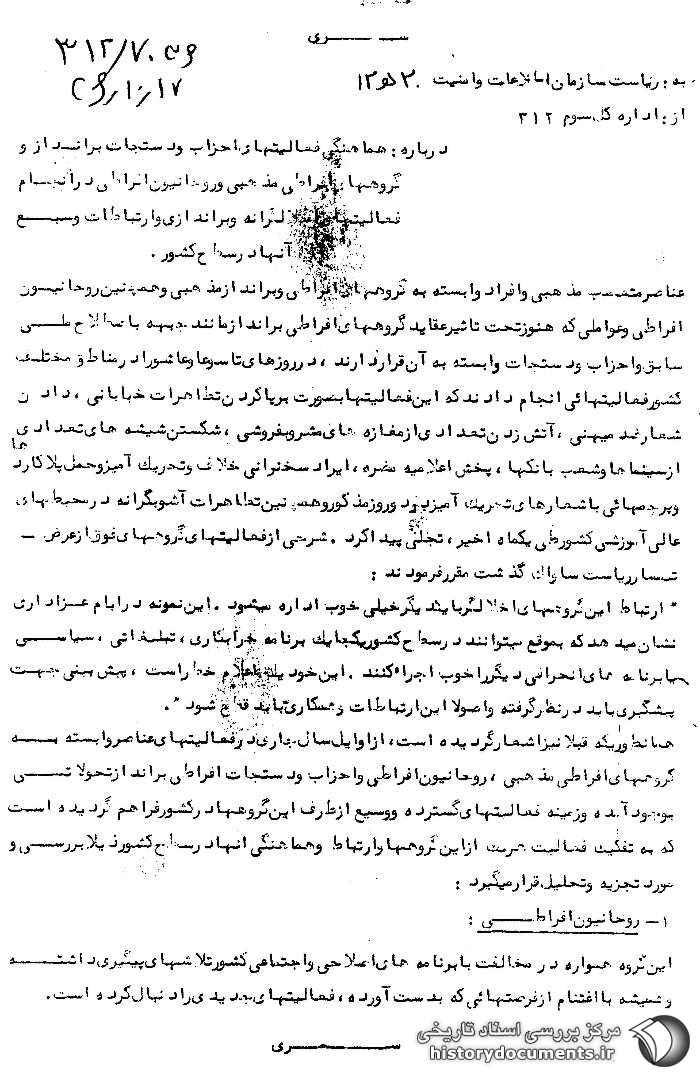 ســـــــری
۳۱۲/۷۰۰۰
به : ریاست سازمان اطلاعات و امنیت
از : اداره کل سوم ۳۱۲
درباره : هماهنگی فعالیتهای احزاب و دستجات برانداز و
گروههای افراطی مذهبی و روحانیون افراطی در انجام
فعالیتهای اخلالگرانه و براندازی و ارتباطات وسیع
آنها در سطح کشور .
عناصر متعصب مذهبی و افراد وابسته به گروههای افراطی و برانداز مذهبی و همچنین روحانیون
افراطی و عواملی که هنوز تحت تاثیر عقاید گروههای افراطی برانداز مانند جبهه باصطلاح ملی
سابق و احزاب و دستجات وابسته به آن قرار دارند ، در روزهای تاسوعا و عاشورا در مناطق مختلف
کشور فعالیتهائی انجام دادند که این فعالیتها بصورت برپا کردن تظاهرات خیابانی ، دادن
شعار ضد میهنی ، آتش زدن تعدادی از مغازه های مشروبفروشی ، شکستن شیشه های تعدادی
از سینماها و شعب بانکها ، پخش اعلامیه مضره ، ایراد سخنرانی خلاف و تحریک آمیز و حمل پلاکاردها
و پرچمهائی با شعارهای تحریک آمیز در دو روز مذکور و همچنین تظاهرات آشوبگرانه در محیطهای
عالی آموزشی کشور طی یکماه اخیر ، تجلی پیدا کرد . شرحی از فعالیتهای گروههای فوق از عرض -
تیمسار ریاست ساواک گذشت مقرر فرمودند :
" ارتباط این گروههای اخلالگر با یکدیگر خیلی خوب اداره میشود . این نمونه در ایام عزاداری
نشان میدهد که بموقع میتوانند در سطح کشور یکجا یک برنامه خرابکاری ، تبلیغاتی ، سیاسی
یا برنامه های انحرافی دیگر را خوب اجرا کنند . این خود یک اعلام خطر است ، پیش بینی جهت
پیشگیری باید در نظر گرفته و اصولا این ارتباطات و همکاری باید قطع شود " .
همانطوریکه قبلا نیز اشعار گردیده است ، از اوایل سال جاری در فعالیتهای عناصر وابسته به
گروههای افراطی مذهبی ، روحانیون افراطی و احزاب و دستجات افراطی برانداز تحولاتی
بوجود آمده و زمینه فعالیتهای گسترده و وسیع از طرف این گروهها در کشور فراهم گردیده است
که به تفکیک فعالیت هریک از این گروهها و ارتباط و هماهنگی آنها در سطح کشور ذیلا بررسی و
مورد تجزیه و تحلیل قرار میگیرد :
۱- روحانیون افراطــــی :
این گروه همواره در مخالفت با برنامه های اصلاحی و اجتماعی کشور تلاشهای پیگیری داشته
و همیشه با اغتنام از فرصتهائی که بدست آورده ، فعالیتهای جدیدی را دنبال کرده است .
ســـــــری
مرکز بررسی اسناد تاریخی
historydocuments.ir